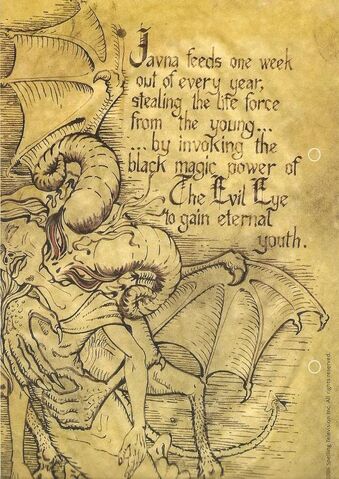 Javna feeds one week
out of every year,
stealing the life force
from the young...
...by invoking the
black magic power of
The Evil Eye
to gain eternal
youth.
Spelling Television Inc. All rights reserved.